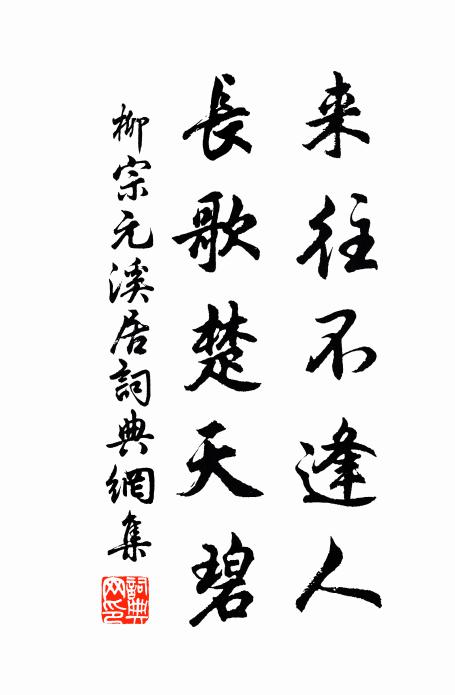 来往不逢人
長歌楚天碧
柳宗元溪居詞典網集
詞典网印